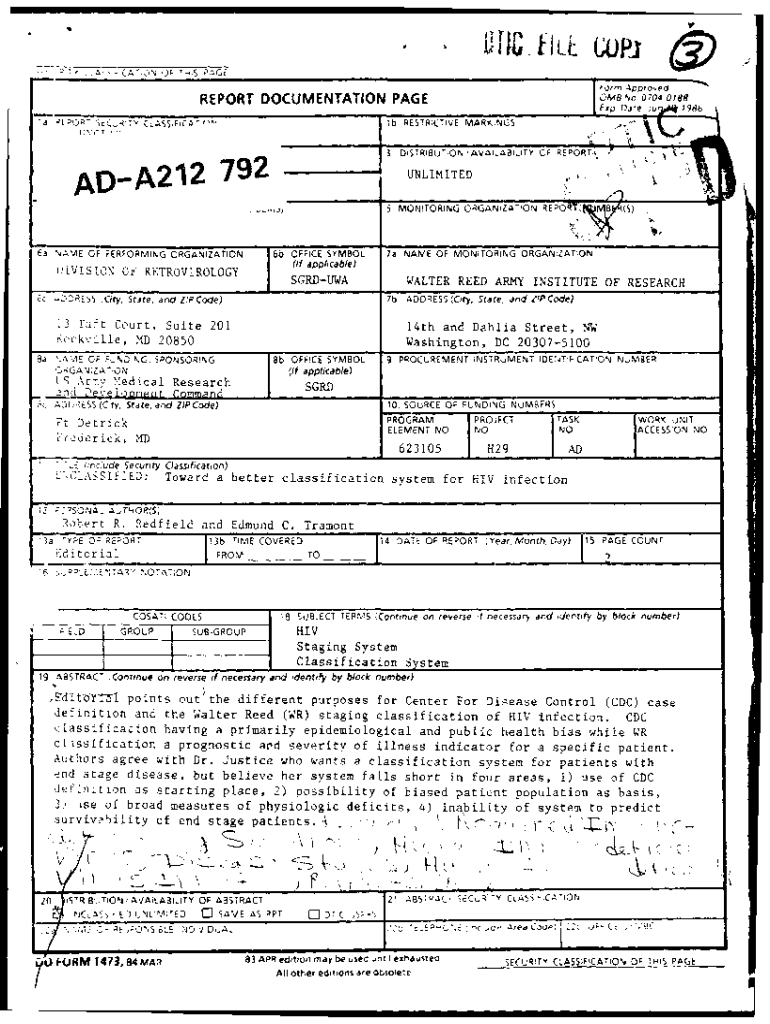 DTIC FILE COPY
3
SECURITY CLASSIFICATION OF THIS PAGE
REPORT DOCUMENTATION PAGE
Form Approved
OMB No 0704-0188
Exp Date Jun 30 1986
1a REPORT SECURITY CLASSIFICATION
1b RESTRICTIVE MARKINGS
AD-A212 792
3 DISTRIBUTION/AVAILABILITY OF REPORT
UNLIMITED
5 MONITORING ORGANIZATION REPORT NUMBER(S)
6a NAME OF PERFORMING ORGANIZATION
DIVISION OF RETROVIROLOGY
6b OFFICE SYMBOL
(If applicable)
SGRD-UWA
7a NAME OF MONITORING ORGANIZATION
WALTER REED ARMY INSTITUTE OF RESEARCH
6c ADDRESS (City, State, and ZIP Code)
13 Taft Court, Suite 201
Rockville, MD 20850
7b ADDRESS (City, State, and ZIP Code)
14th and Dahlia Street, NW
Washington, DC 20307-5100
8a NAME OF FUNDING/SPONSORING
ORGANIZATION
US Army Medical Research
and Development Command
8b OFFICE SYMBOL
(If applicable)
SGRD
9 PROCUREMENT INSTRUMENT IDENTIFICATION NUMBER
8c ADDRESS (City, State, and ZIP Code)
Ft Detrick
Frederick, MD
10 SOURCE OF FUNDING NUMBERS
PROGRAM
ELEMENT NO
623105
PROJECT
NO
H29
TASK
NO
AD
WORK UNIT
ACCESSION NO
11 TITLE (Include Security Classification)
UNCLASSIFIED: Toward a better classification system for HIV infection
12 PERSONAL AUTHOR(S)
Robert R. Redfield and Edmund C. Tramont
13a TYPE OF REPORT
Editorial
13b TIME COVERED
FROM TO
14 DATE OF REPORT (Year, Month, Day)
15 PAGE COUNT
2
16 SUPPLEMENTARY NOTATION
17 COSATI CODES
FIELD GROUP SUB-GROUP
18 SUBJECT TERMS (Continue on reverse if necessary and identify by block number)
HIV
Staging System
Classification System
19 ABSTRACT (Continue on reverse if necessary and identify by block number)
Editorial points out the different purposes for Center For Disease Control (CDC) case
definition and the Walter Reed (WR) staging classification of HIV infection. CDC
classification having a primarily epidemiological and public health bias while WR
classification a prognostic and severity of illness indicator for a specific patient.
Authors agree with Dr. Justice who wants a classification system for patients with
end stage disease, but believe her system falls short in four areas, 1) use of CDC
definition as starting place, 2) possibility of biased patient population as basis,
3) use of broad measures of physiologic deficits, 4) inability of system to predict
survivability of end stage patients.
20 DISTRIBUTION/AVAILABILITY OF ABSTRACT
UNCLASSIFIED/UNLIMITED SAME AS RPT DTIC USERS
21 ABSTRACT SECURITY CLASSIFICATION
22a NAME OF RESPONSIBLE INDIVIDUAL
22b TELEPHONE (Include Area Code)
22c OFFICE SYMBOL
DD FORM 1473, 84 MAR
83 APR edition may be used until exhausted
All other editions are obsolete
SECURITY CLASSIFICATION OF THIS PAGE